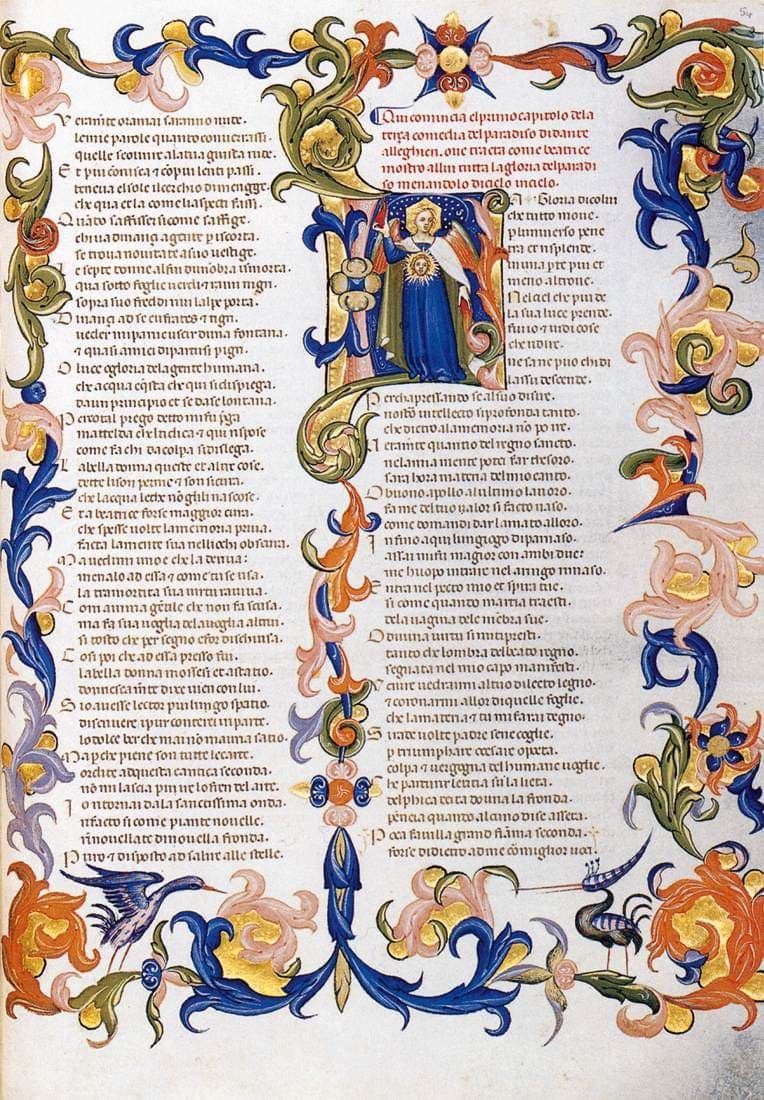 54
Veramẽte oramai saranno nude
le mie parole quanto converrassi
quelle scovrire alla tua giusta rude.
Et piu corusca et con piu lenti passi
teneva el sole il cerchio di merigge
che qua et la come li aspecti fassi.
Quãdo saffisser sicome saffige
chi va dinançi a gente per iscorta
se trova novitate a suo vestige.
Le septe donne al fin dunõbra ismorta
qua sotto foglie verdi et rami nigri
sopra suo freddi rivi lalpe porta.
Dinançi ad se eufrates et tigri
veder mi parve uscir duna fontana
et quasi amici dipartirsi pigri.
O luce o gloria de la gente humana
che acqua è q̃sta che qui si dispiega
da un principio et se da se lontana.
Per cotal prego detto mi fu priega
mattelda che il ti dica et qui rispose
come fa chi da colpa si dislega.
La bella donna queste et altre cose
dette li son per me et son sicura
che lacqua di lethe nõ gli li nascose.
Et a beatrice forse maggior cura
che spesse volte la memoria priva
facta la mente sua nelli occhi obscura.
Ma vedi eunoe che la deriva
menalo ad essa et come tu se usa
la tramortita sua virtu raviva.
Com anima gẽtile che non fa scusa
ma fa sua voglia de la voglia altrui
si tosto che per segno e for dischiusa.
Cosi poi che ad essa presso fui
la bella donna mossesi et a statio
donnescamẽte dixe vien con lui.
Sio avesse lector piu lungo spatio
di scrivere i pur conterei in parte
lo dolce ber che mai nõ mavria satio.
Ma perche piene son tutte le carte
ordite ad questa cantica seconda
nõ mi lascia piu ire lo fren del arte.
Io ritornai da la sanctissima onda
rifacto si come piante novelle
rinovellate di novella fronda.
Puro et disposto ad salire alle stelle.
Qui comincia el primo capitolo de la
terça comedia del paradiso di dante
alleghieri. ove tracta come beatrice
mostro allui tutta la gloria del paradi
so menandolo di cielo in cielo.
La Gloria di colui
che tutto move
per luniverso pene
tra et risplende
in una parte piu et
meno altrove.
Nel ciel che piu de
la sua luce prende
fu io et vidi cose
che ridire
ne sa ne puo chi di
lassu descende.
Perche apressando se al suo disire
nostro intellecto si profonda tanto
che dietro a la memoria nõ po ire.
Veramẽte quantio del regno sancto
ne la mia mente potei far thesoro
sara hora materia del mio canto.
O buono apollo al ultimo lavoro
fa me del tuo valor si facto vaso
come comandi dar lamato alloro.
Infino a qui lun giugo di parnaso
assai mi fu ma gior con ambi due
me huopo intrare nel aringo rimaso.
Entra nel pecto mio et spira tue
si come quando marsia traesti
de la vagina de le mẽbra sue.
O divina virtu si mi ti presti
tanto che lombra del beato regno
segnata nel mio capo manifesti.
Venire vedrami al tuo dilecto legno
et coronarmi allor di quelle foglie
che la materia et tu mi farai degno.
Si rade volte padre sene coglie
per triumphare o cesare o poeta
colpa et vergogna del humane voglie.
Che parturir letitia su la lieta
delphica deita dovria la fronda
peneia quando alcuno di se asseta.
Poca favilla grande fiãma seconda
forse di dietro ad me cõ miglior voci